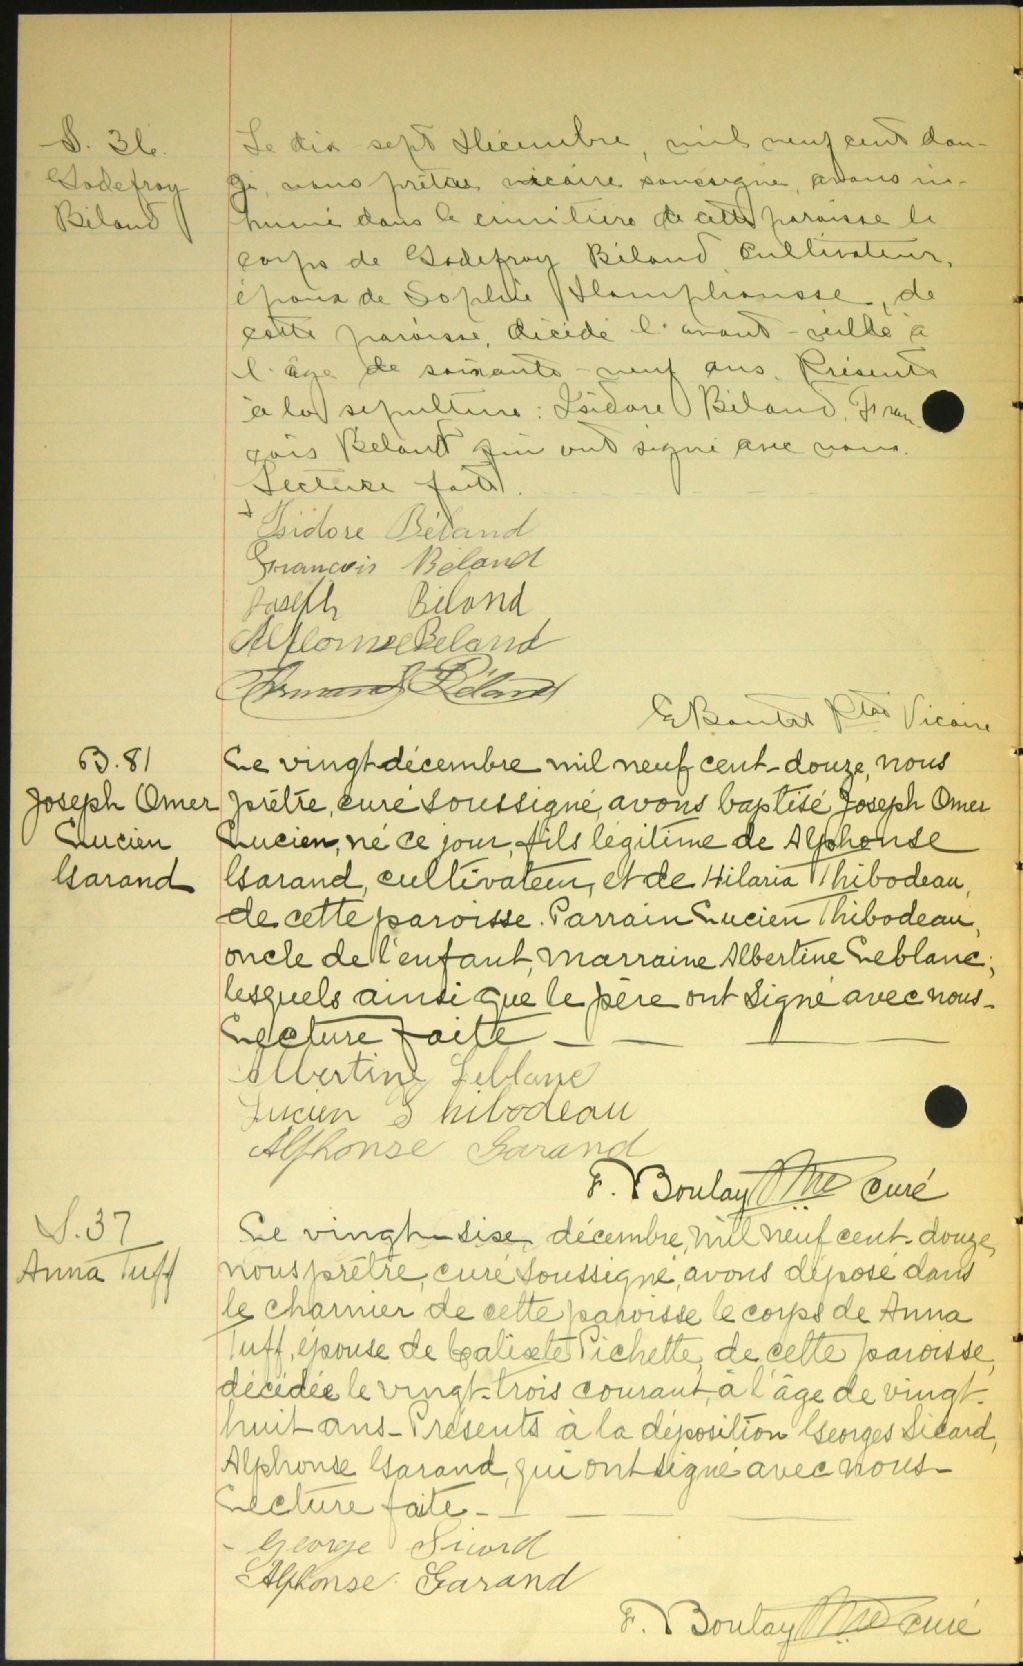 S. 36.
Godefroy
Béland
Le dix-sept décembre, mil neuf cent dou-
ze, nous prêtre vicaire soussigné, avons in-
humé dans le cimetière de cette paroisse le
corps de Godefroy Béland cultivateur,
époux de Sophie Lamphousse, de
cette paroisse, décédé l'avant-veille à
l'âge de soixante-neuf ans. Présents
à la sépulture: Isidore Béland, Fran
çois Béland qui ont signé avec nous.
Lecture faite.
Isidore Béland
François Béland
Joseph Béland
Alphonse Béland
Armand Béland
Ptre Vicaire
B. 81
Joseph Omer
Lucien
Garand
Le vingt décembre mil neuf cent-douze, nous
prêtre, curé soussigné, avons baptisé Joseph Omer
Lucien, né ce jour, fils légitime de Alphonse
Garand, cultivateur, et de Hilaria Thibodeau,
de cette paroisse. Parrain Lucien Thibodeau,
oncle de l'enfant, marraine Albertine Leblanc;
lesquels ainsi que le père ont signé avec nous-
Lecture faite -
Albertine Leblanc
Lucien Thibodeau
Alphonse Garand
F. Boulay Ptre curé
S. 37
Anna Tuff
Le vingt-six décembre, mil neuf cent-douze,
nous prêtre, curé soussigné, avons déposé dans
le charnier de cette paroisse le corps de Anna
Tuff, épouse de Calixte Pichette, de cette paroisse,
décédée le vingt-trois courant, à l'âge de vingt-
huit ans- Présents à la déposition Georges Sicard,
Alphonse Garand, qui ont signé avec nous-
Lecture faite -
George Sicard
Alphonse Garand
F. Boulay Ptre curé